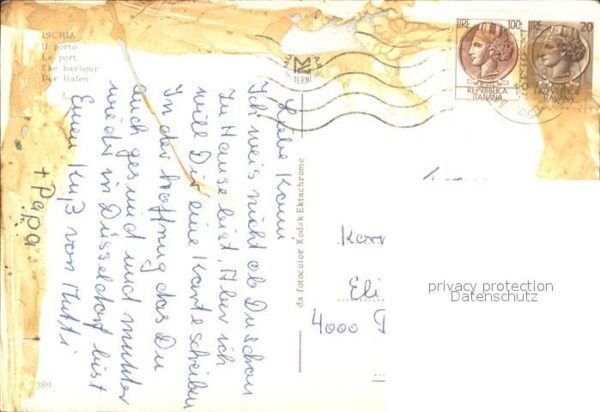 ISCHIA
Il porto
Le port
The harbour
Der Hafen
LIRE 100
REPVBBLICA
ITALIANA
LIRE 20
REPVBBLICA
ITALIANA
TERNI
Liebe Konni
Ich weis nicht ob Du schon
zu Hause bist. Aber ich
will Dir eine Karte schreiben
In der Hoffnug das Du
auch gesund und munter
wieder in Düsseldorf bist
Einen Kuß von Mutti
+ Papa
da fotocolor Kodak Ektachrome
Eli
4000
privacy protection
Datenschutz
389